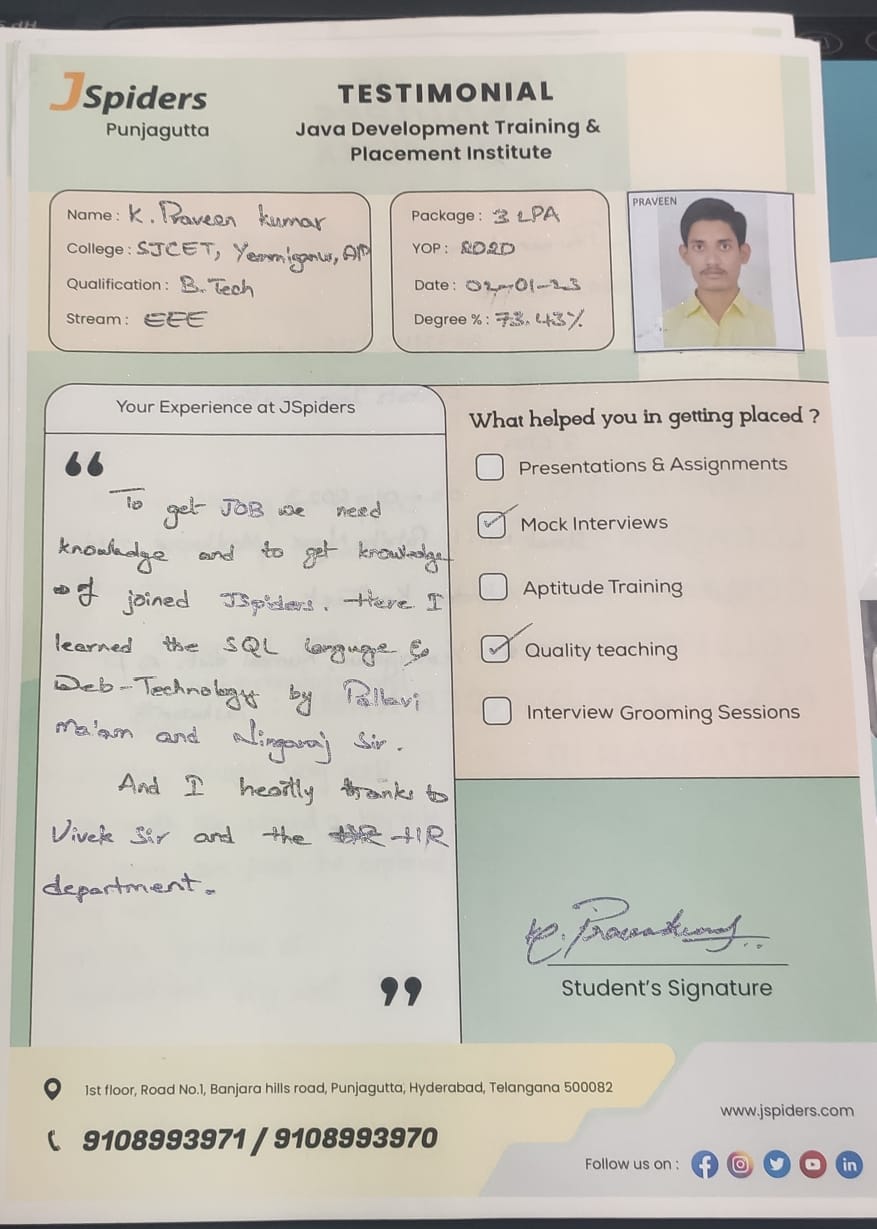 JSpiders
Punjagutta
TESTIMONIAL
Java Development Training &
Placement Institute
Name : K. Praveen kumar
College : SJCET, Yemmiganur, AP
Qualification : B. Tech
Stream : EEE
Package : 3 LPA
YOP : 2020
Date : 02-01-23
Degree % : 73.43%
PRAVEEN
Your Experience at JSpiders
“
To get JOB we need
knowledge and to get knowledge
I joined JSpiders. Here I
learned the SQL language &
Web-Technology by Pallavi
Ma'am and Ningaraj Sir.
And I heartly thanks to
Vivek Sir and the HR
department.
”
What helped you in getting placed ?
Presentations & Assignments
Mock Interviews
Aptitude Training
Quality teaching
Interview Grooming Sessions
K. Praveenkumar
Student's Signature
1st floor, Road No.1, Banjara hills road, Punjagutta, Hyderabad, Telangana 500082
9108993971 / 9108993970
www.jspiders.com
Follow us on :